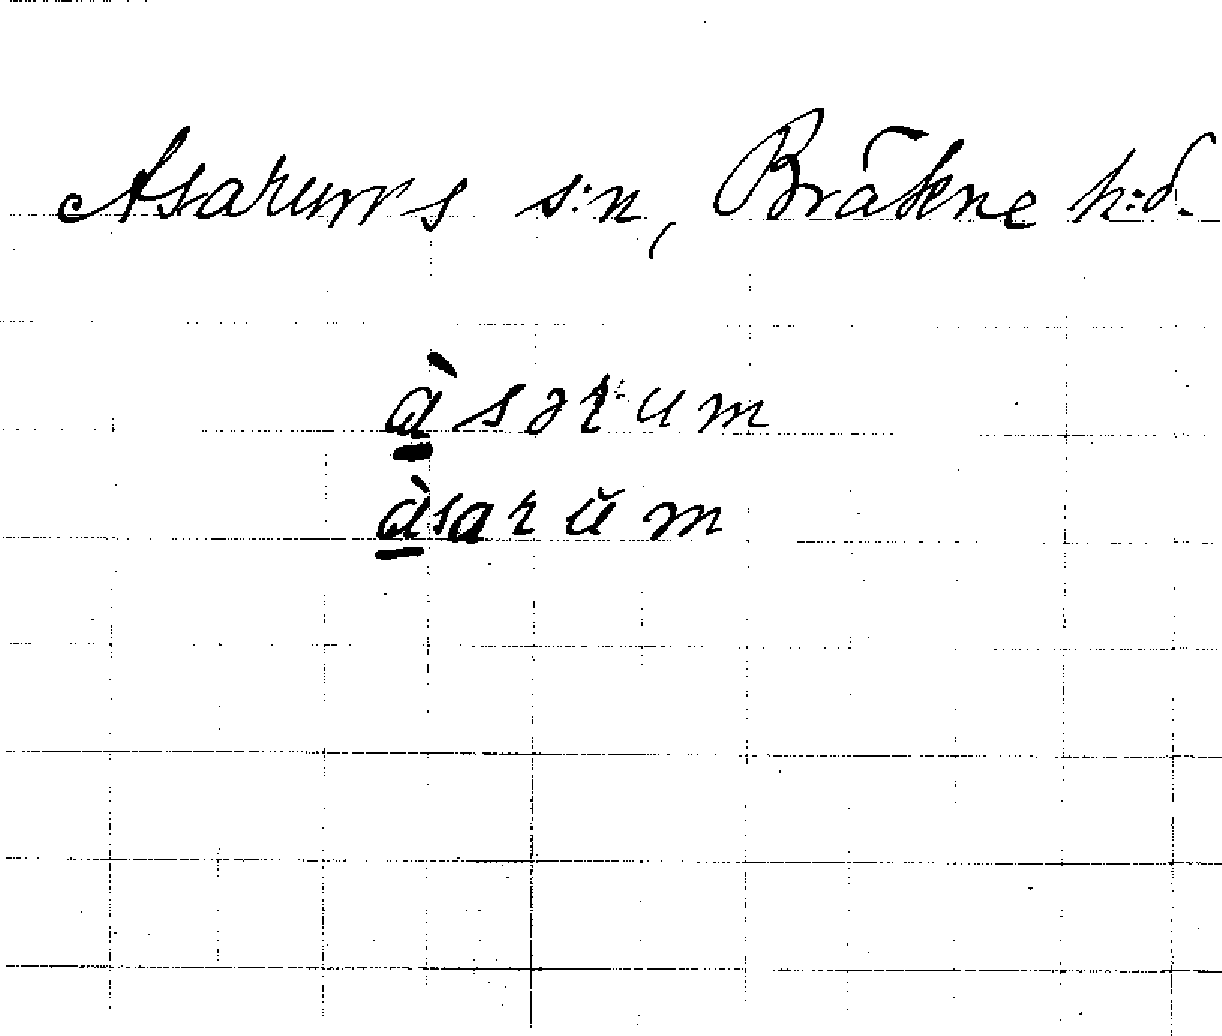 Asarums s:n, Bräkne h:d.
à̱sərum
à̱sarŭm